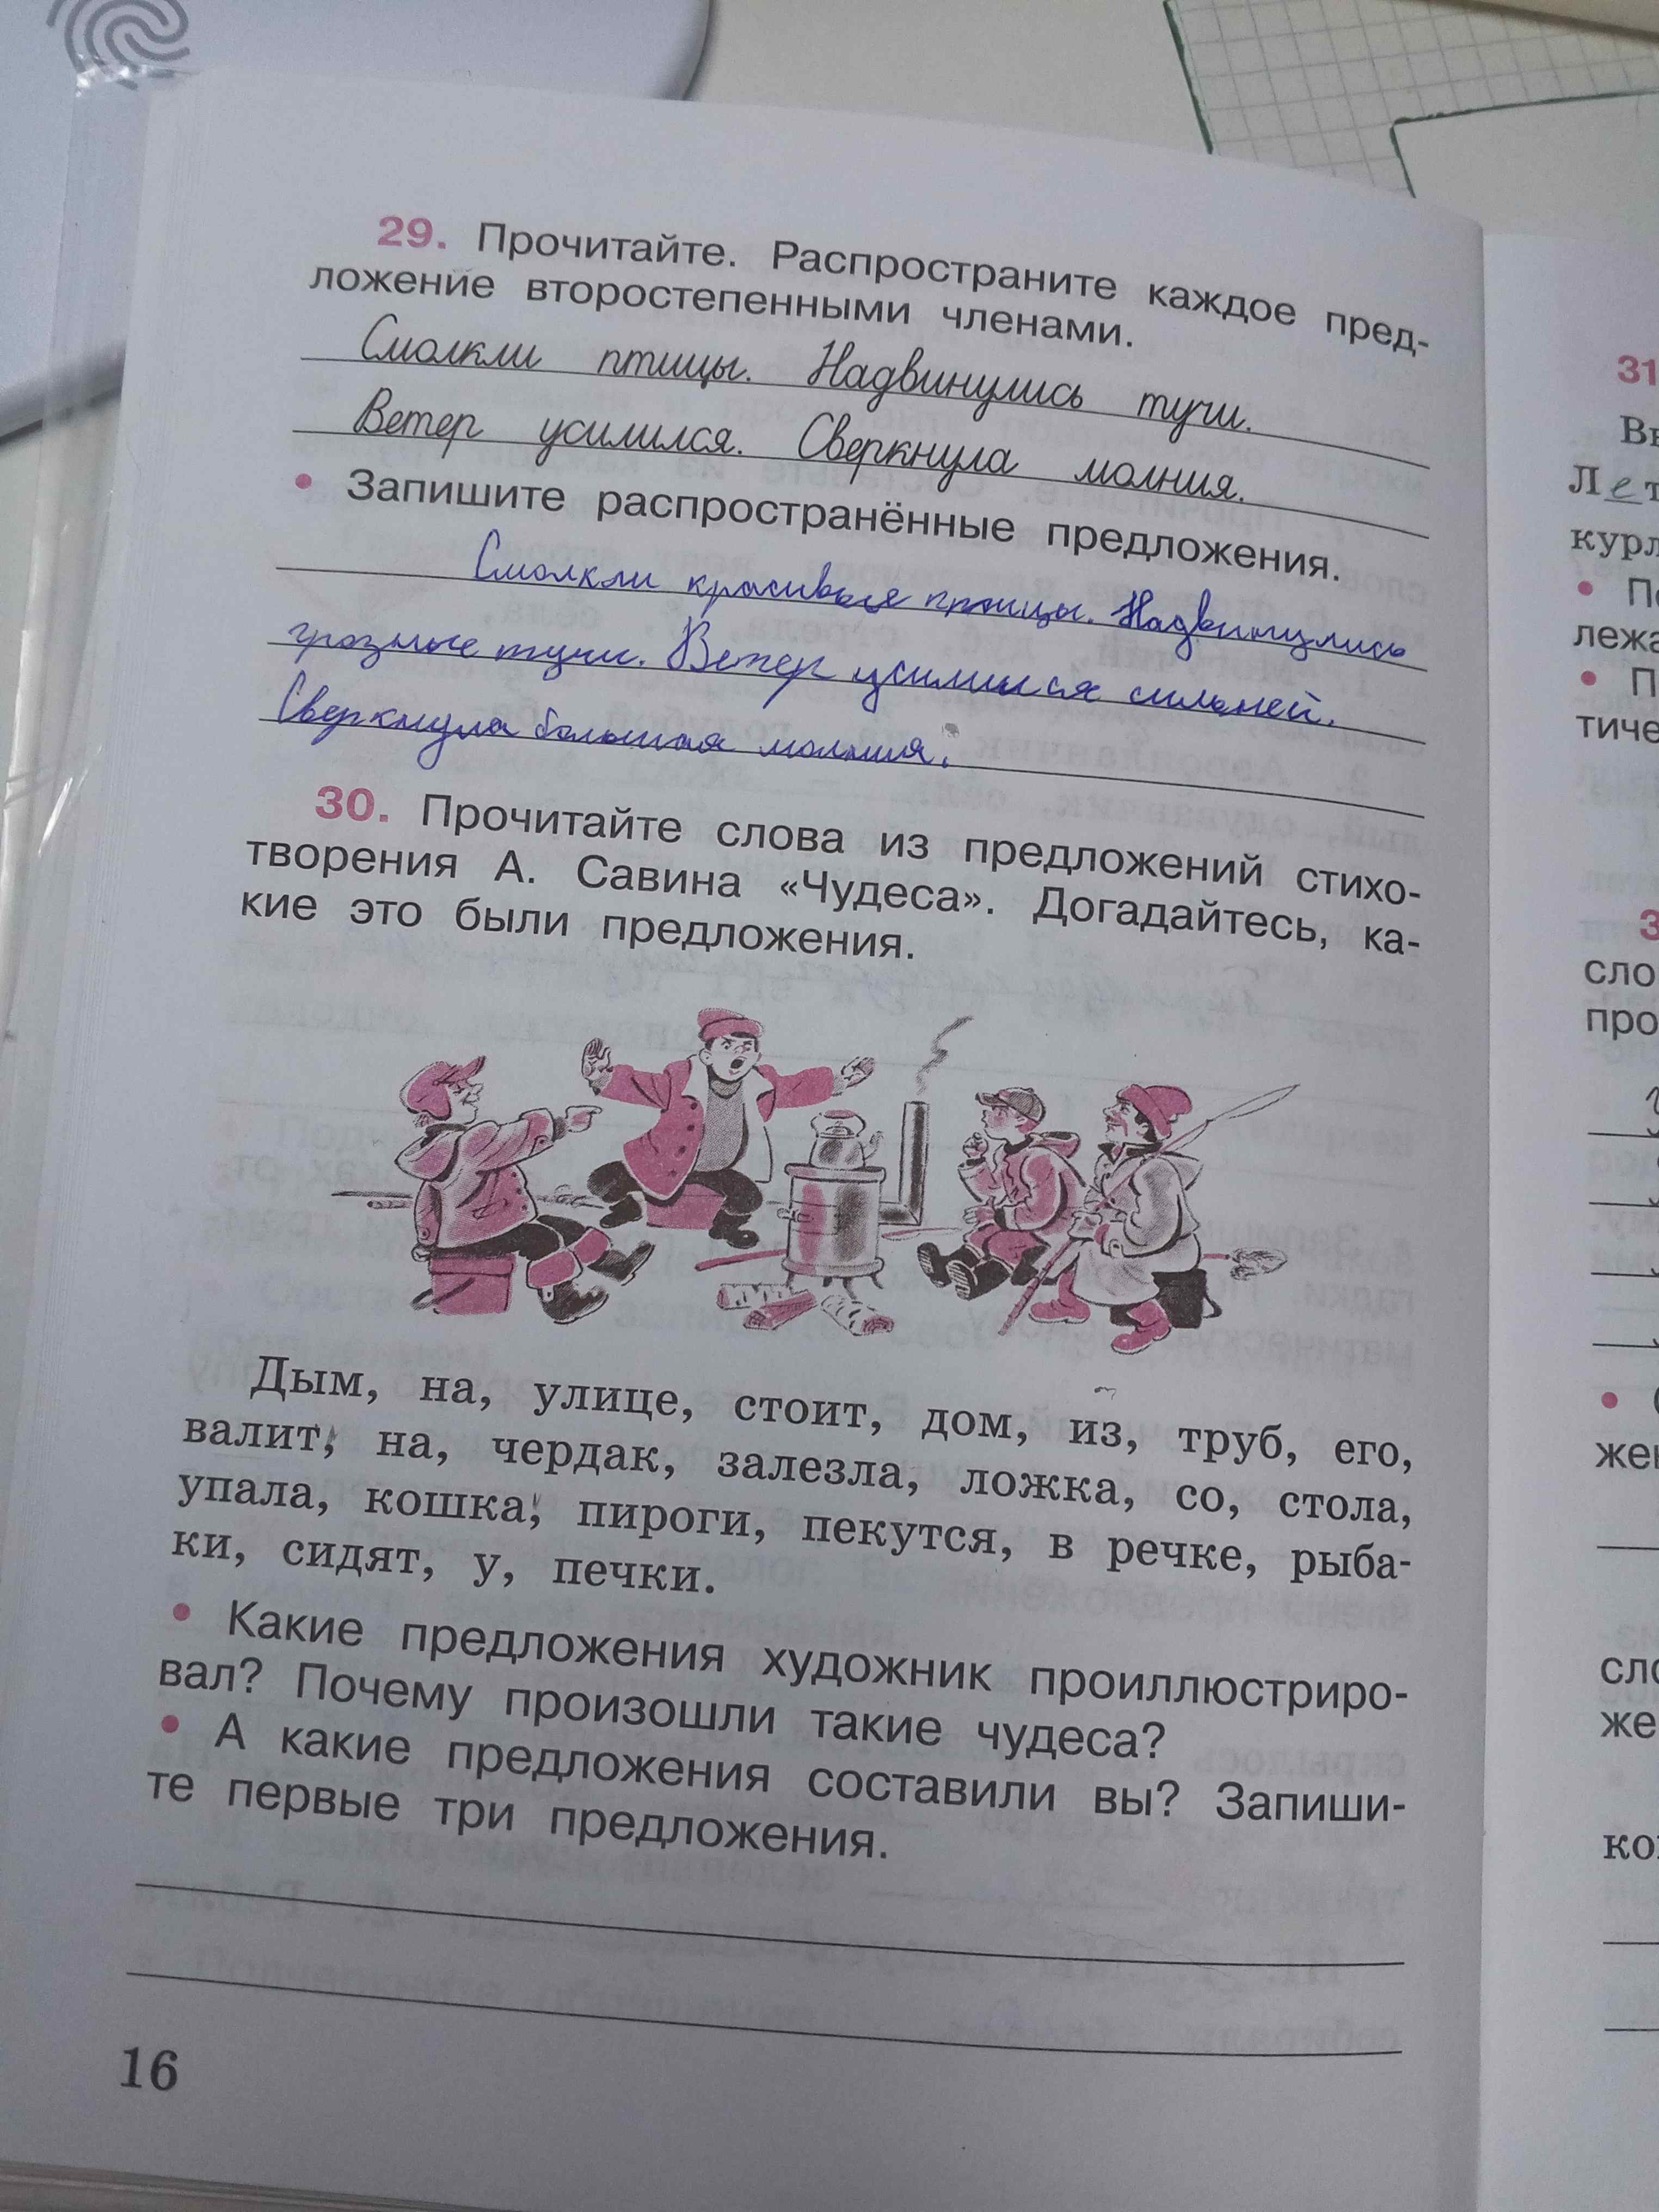 29. Прочитайте. Распространите каждое пред-
ложение второстепенными членами.
Смолкли птицы. Надвинулись тучи.
Ветер усилился. Сверкнула молния.
• Запишите распространённые предложения.
Смолкли красивые птицы. Надвинулись
грозные тучи. Ветер усилился сильней.
Сверкнула большая молния.
30. Прочитайте слова из предложений стихо-
творения А. Савина «Чудеса». Догадайтесь, ка-
кие это были предложения.
Дым, на, улице, стоит, дом, из, труб, его,
валит, на, чердак, залезла, ложка, со, стола,
упала, кошка, пироги, пекутся, в речке, рыба-
ки, сидят, у, печки.
• Какие предложения художник проиллюстриро-
вал? Почему произошли такие чудеса?
• А какие предложения составили вы? Запиши-
те первые три предложения.
16
31
Лет
курл
• П
лежа
• П
тиче
3
сло
про
•
же
сло
же